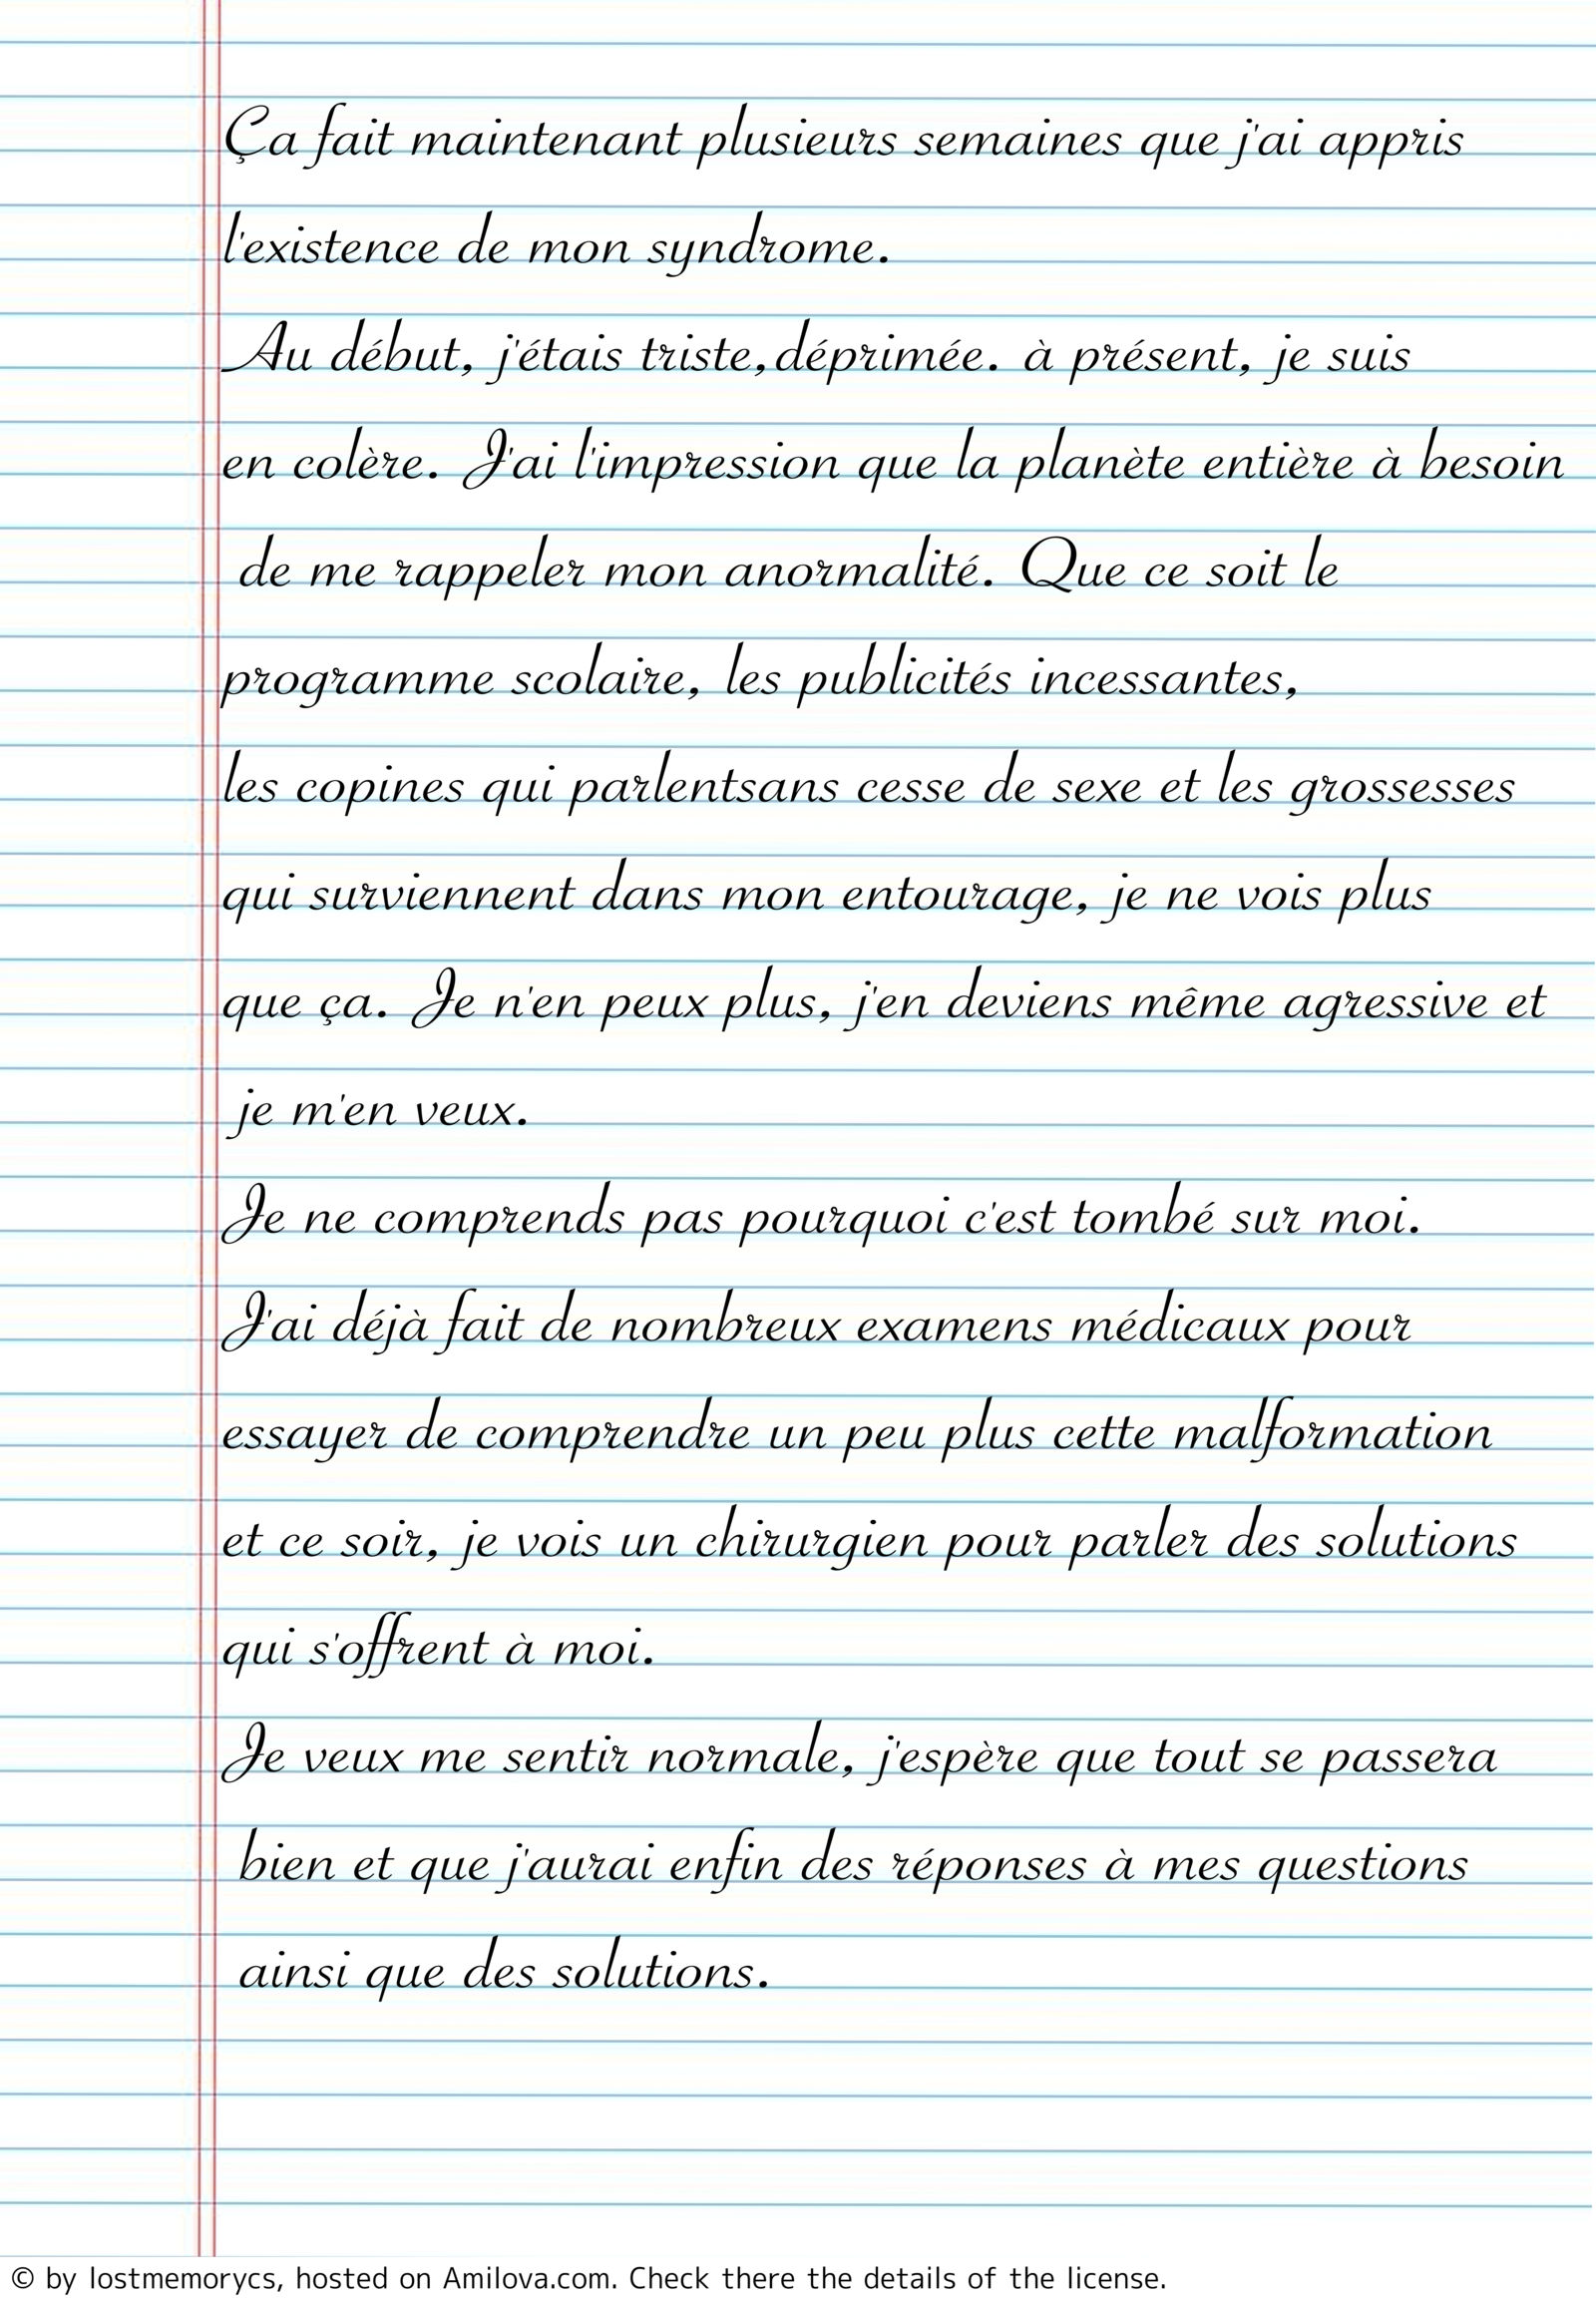 Ça fait maintenant plusieurs semaines que j'ai appris
l'existence de mon syndrome.
Au début, j'étais triste,déprimée. à présent, je suis
en colère. J'ai l'impression que la planète entière à besoin
de me rappeler mon anormalité. Que ce soit le
programme scolaire, les publicités incessantes,
les copines qui parlentsans cesse de sexe et les grossesses
qui surviennent dans mon entourage, je ne vois plus
que ça. Je n'en peux plus, j'en deviens même agressive et
je m'en veux.
Je ne comprends pas pourquoi c'est tombé sur moi.
J'ai déjà fait de nombreux examens médicaux pour
essayer de comprendre un peu plus cette malformation
et ce soir, je vois un chirurgien pour parler des solutions
qui s'offrent à moi.
Je veux me sentir normale, j'espère que tout se passera
bien et que j'aurai enfin des réponses à mes questions
ainsi que des solutions.
© by lostmemorycs, hosted on Amilova.com. Check there the details of the license.